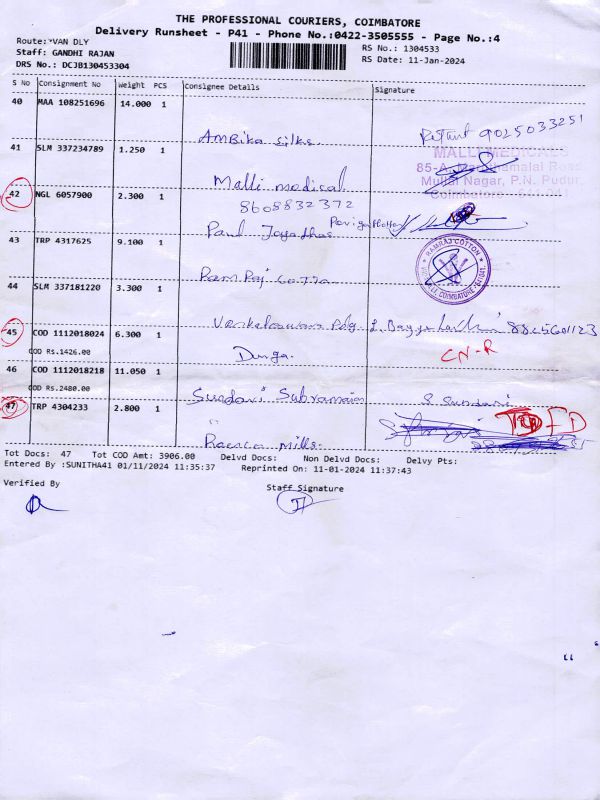 THE PROFESSIONAL COURIERS, COIMBATORE
Delivery Runsheet - P41 - Phone No.:0422-3505555 - Page No.:4
Route:*VAN DLY
Staff: GANDHI RAJAN
DRS No.: DCJB130453304
RS No.: 1304533
RS Date: 11-Jan-2024
S No Consignment No Weight PCS Consignee Details Signature
40 MAA 108251696 14.000 1
Ambika silks 9025033251
41 SLM 337234789 1.250 1
MALLI MEDICALS
85-A, Marudhamalai Road
Mullai Nagar, P.N. Pudur
Coimbatore - 641 041
Malli medical
8608832372
42 NGL 6057900 2.300 1
Paul
43 TRP 4317625 9.100 1
RAMRAJ COTTON
COIMBATORE - 641 041
Ram Raj Cotton
44 SLM 337181220 3.300 1
Venkateswara 8825601123
45 COD 1112018024 6.300 1
COD Rs.1426.00
Durga. CN-R
46 COD 1112018218 11.050 1
COD Rs.2480.00
Sundari Subramani S. Sundari
47 TRP 4304233 2.800 1
FD
Mills.
Tot Docs: 47 Tot COD Amt: 3906.00 Delvd Docs: Non Delvd Docs: Delvy Pts:
Entered By :SUNITHA41 01/11/2024 11:35:37 Reprinted On : 11-01-2024 11:37:43
Verified By
Staff Signature